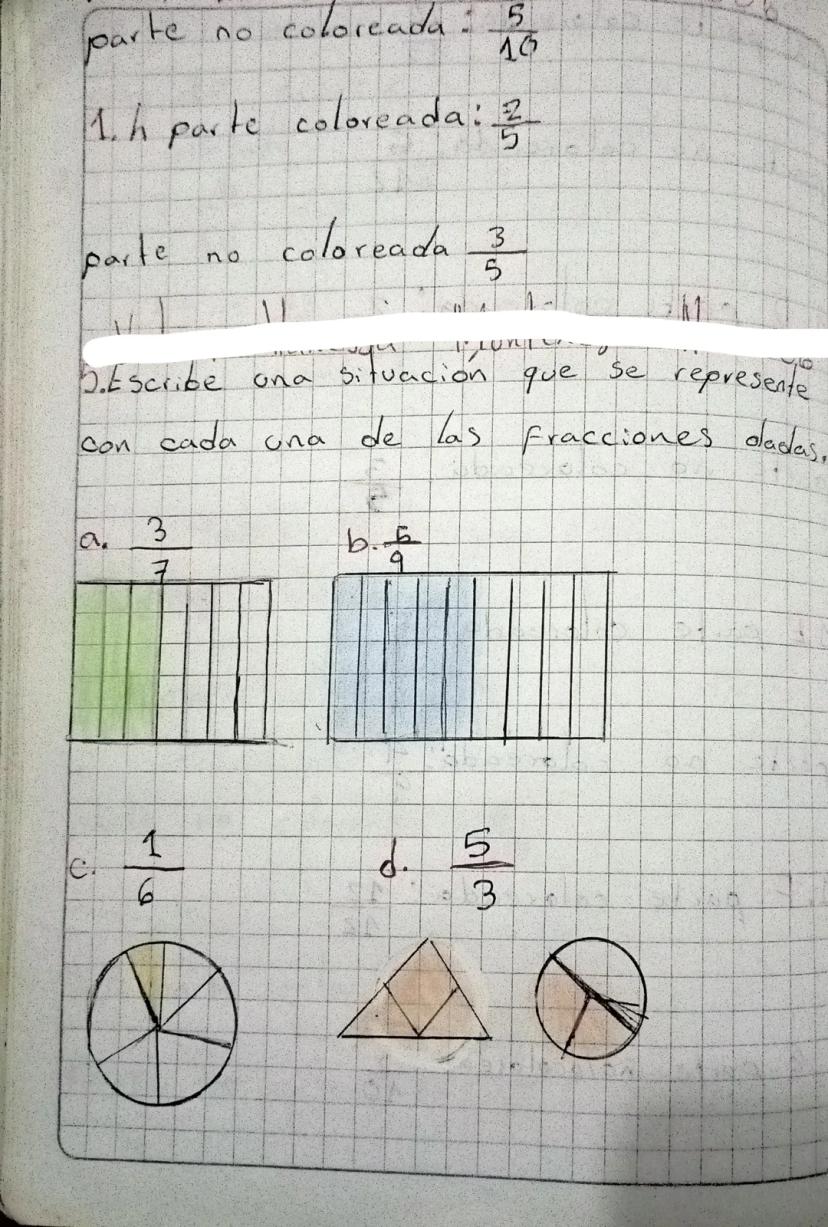 parte no coloreada: 5/10
1.h parte coloreada: 2/5
parte no coloreada 3/5
Escribe una situación que se represente
con cada una de las fracciones dadas.
a. 3/7 b. 5/9
c. 1/6 d. 5/3